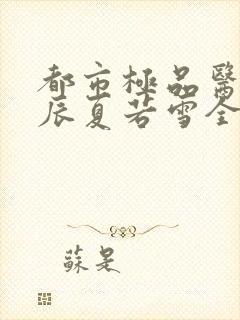 都市極品醫
辰夏若雪全
蘇是